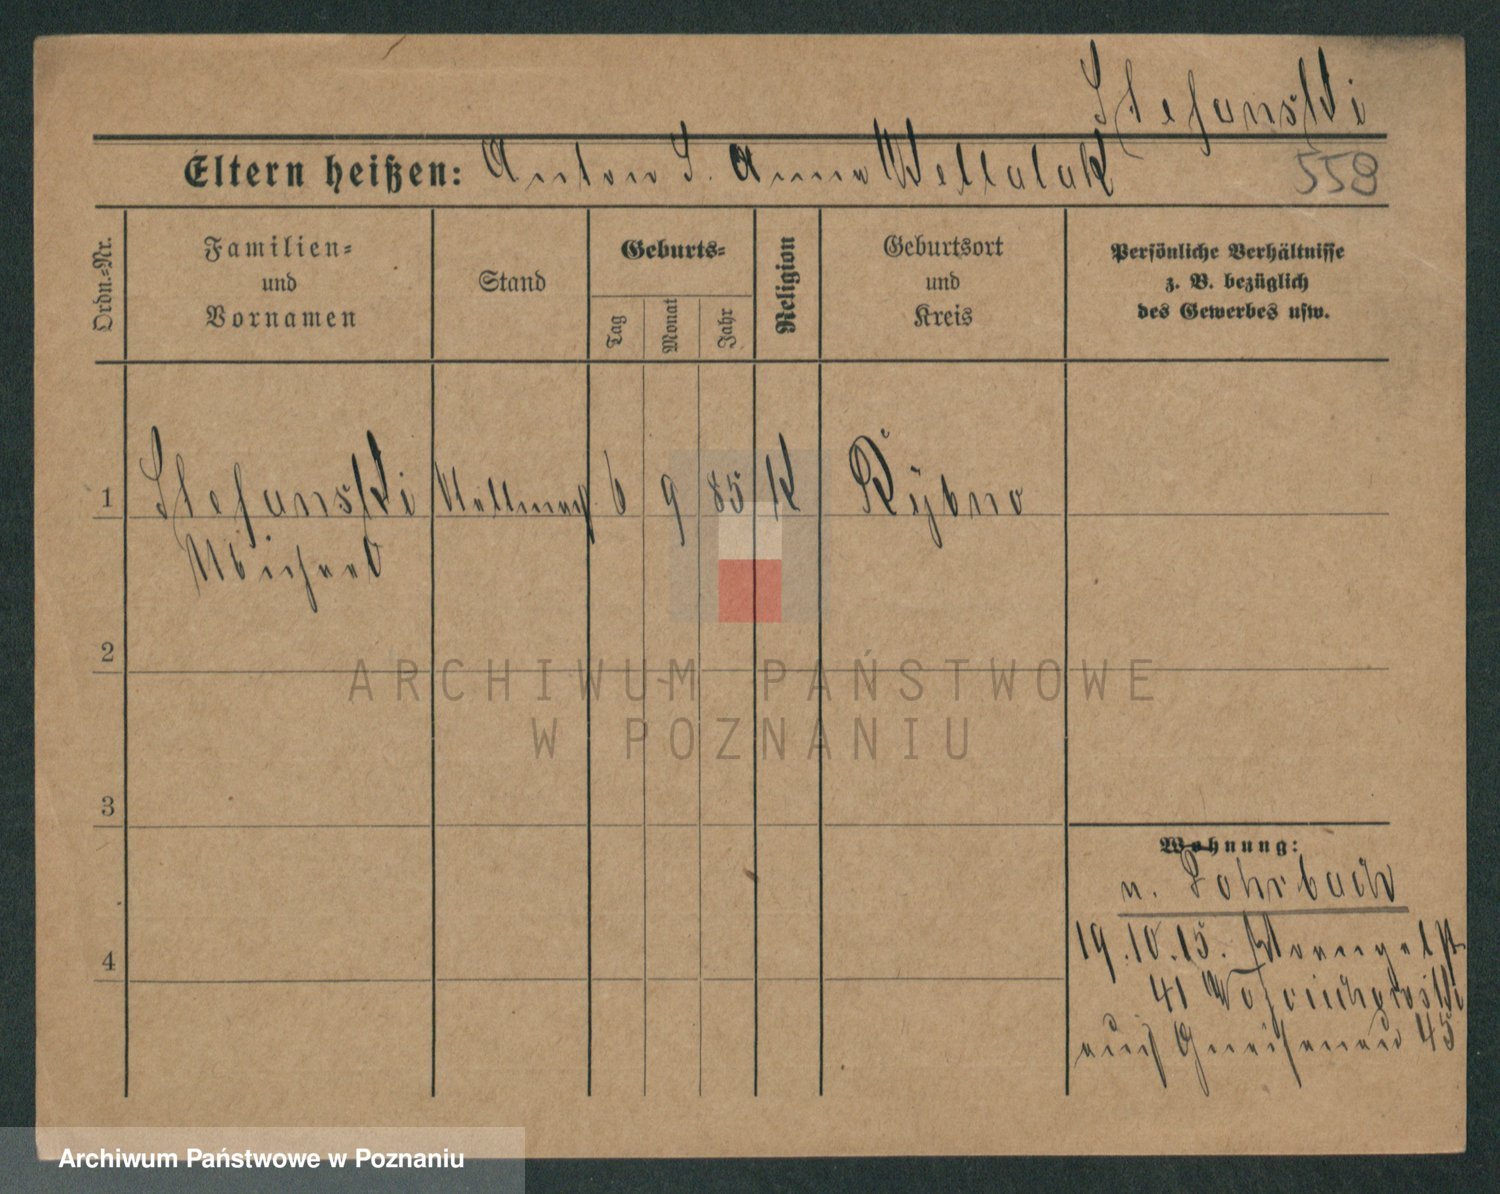 Stefanski
Eltern heißen: Anton S. Anna Wellalak
558
Ordn.-Nr.
Familien-
und
Vornamen
Stand
Geburts-
Tag
Monat
Jahr
Religion
Geburtsort
und
Kreis
Persönliche Verhältnisse
z. B. bezüglich
des Gewerbes usw.
1 Stefanski 6 9 85 K Rybno
Michael
2
3
4
Wohnung:
n. Lohrbach
19.10.15.
41
auch Gneisenau 45
ARCHIWUM PAŃSTWOWE
W POZNANIU
Archiwum Państwowe w Poznaniu